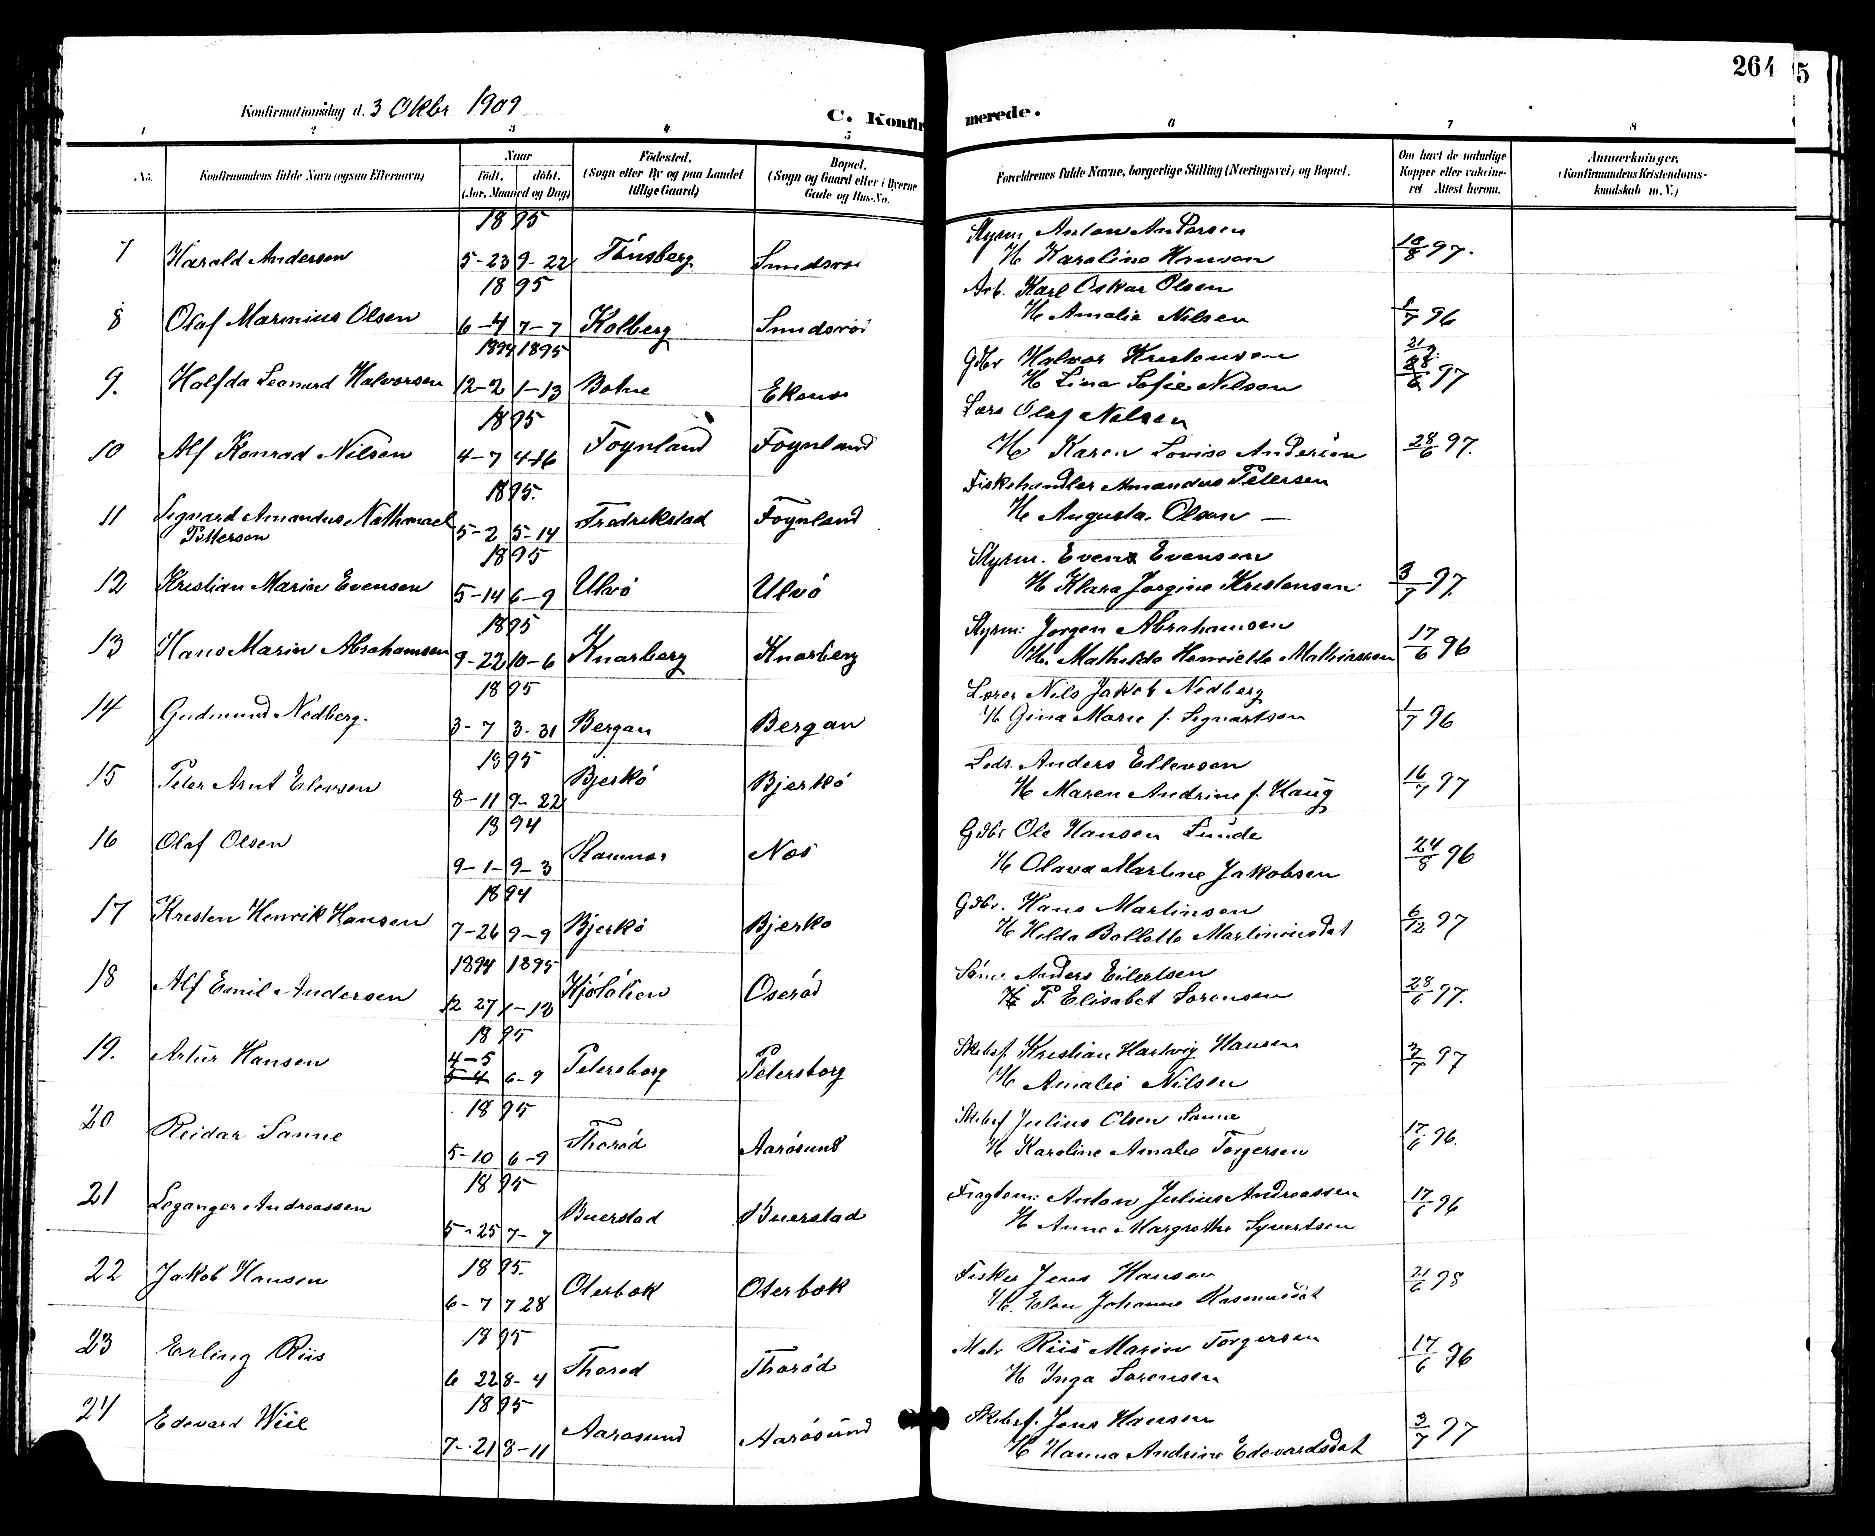 264
5
Konfirmationsdag d. 3 Oktbr 1909
C. Konfirmerede.
1 2 3 4 5 6 7 8
No.
Konfirmandens fulde Navn (ogsaa Efternavn)
Naar
født. døbt.
(Aar, Maaned og Dag)
Födested.
(Sogn eller By og paa Landet
tillige Gaard)
Bopæl.
(Sogn og Gaard eller i Byerne
Gade og Hus-No.
Forældrenes fulde Navne, borgerlige Stilling (Næringsvei) og Bopæl.
Om havt de naturlige
Kopper eller vaccine-
ret Attest herom.
Anmærkninger,
(Konfirmandens Kristendoms-
kundskab m. V.)
1895 Styrm. Anton Andersen
7 Harald Andersen 5-23 9-22 Tönsberg Sundsvoi H Karoline Hansen 18/8 97.
1895 Arb. Karl Oskar Olsen
8 Olaf Marinius Olsen 6-4 7-7 Kolberg Sundsvoi H Amalie Nilsen 1/7 96
1894 1895 Gdbr Halvor Kristensen
9. Halfda Leonard Halvorsen 12-2 1-13 Botne Ekenes H Lina Sofie Nilsen 97
1895 Lars Olaf Nilsen
10 Alf Konrad Nilsen 4-7 4-16 Foynland Foynland H Karen Lovise Andersen 28/6 97.
1895. Fiskehandler Amandus Petersen
11 Sigvard Amandus Nathanael 5-2 5-14 Fredrikstad Foynland H Augusta Olsen —
Pettersen
1895 Styrm. Even Evensen
12 Kristian Marin Evensen 5-14 6-9 Ulvö Ulvö H Klara Jorgine Kristensen 3/7 97.
1895 Styrm: Jorgen Abrahamsen
13 Hans Marin Abrahamsen 9-22 10-6 Knarberg Knarberg H. Mathilde Henriette Mathiassen 17/6 96
1895 Lærer Nils Jakob Nedberg
14 Gudmund Nedberg. 3-7 3-31 Bergan Bergan H Gina Marie f. Sigvartsen 1/7 96
1895 Lods. Anders Ellevsen
15 Peter Arnt Elevsen 8-11 9-22 Bjerkö Bjerkö H Maren Andrine f. Haug 16/7 97
1894 Gdbr Ole Hansen Lunde
16 Olaf Olsen 9-1- 9-3 Ramnes Nes H Olava Martine Jakobsen 24/8 96
1894 Gdbr. Hans Martinsen
17 Kristen Henrik Hansen 7-26 9-9 Bjerkö Bjerko H Hilda Bollette Martiniusdat 6/12 97
1894 1895 Anders Eilertsen
18 Alf Emil Andersen 12 27 1-13 Kjölölien Oseröd H P Elisabet Sorensen 28/6 97.
1895 Skibsf. Kristian Hartvig Hansen
19. Artur Hansen 4-5 5-4 6-9 Petersborg Petersborg H Amalie Nilsen 3/7 97
1895 Skibsf Julius Olsen Sanne
20 Reidar Sanne 5-10 6-9 Thoröd Aarösund H Karoline Amalie Torgersen 17/6 96.
1895 Anton Julius Andreassen
21 Leganger Andreassen 5-25 7-7 Buerstad Buerstad H Anne Margrethe Syvertsen 17/6 96
1895. Fisker Jens Hansen
22 Jakob Hansen 6-7 7 28 Oterbek Oterbek H. Elen Johanne Rasmusdat 21/6 98
1895 Riis Marin Torgersen
23 Erling Riis 6 22 8-4 Thorod Thoröd H Inga Sorensen 17/6 96
1895 Skibsf. Jens Hansen
24 Edevard Wiil 7-21 8-11 Aarosund Aarösund H Hanna Andrine Edevardsdat 3/7 97